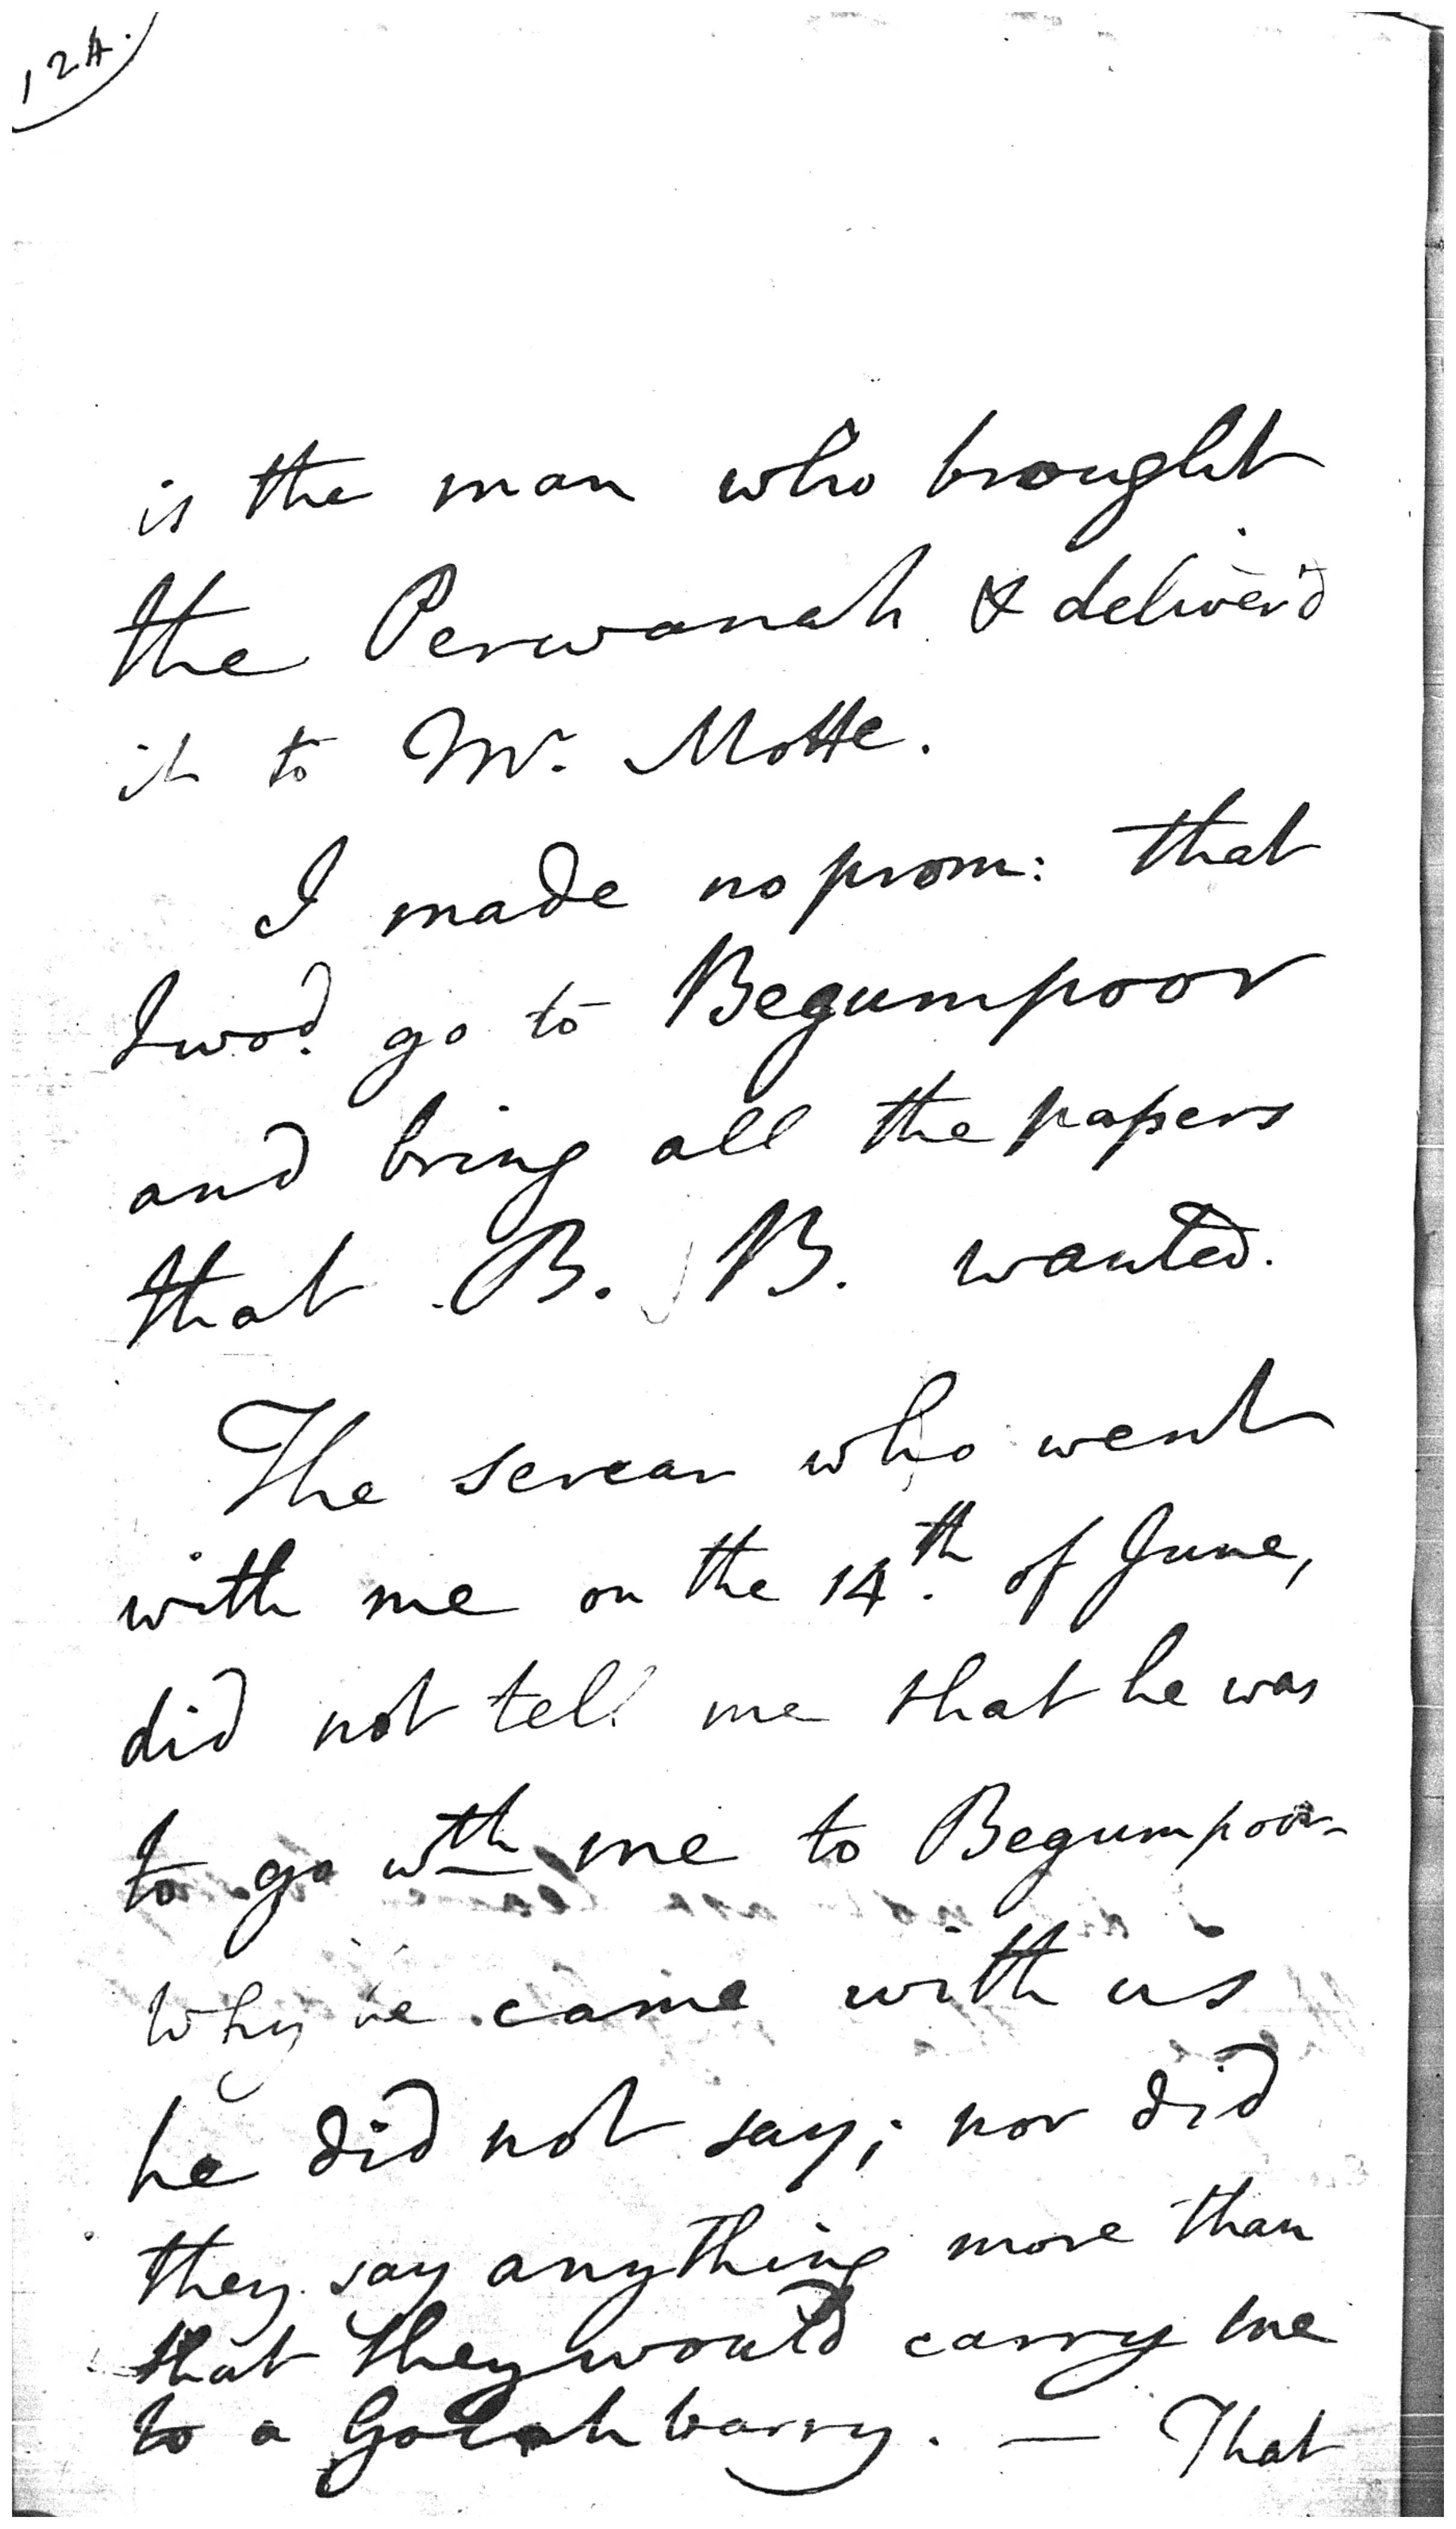 124.
is the man who brought
the Perwanah & deliver'd
it to Mr. Motte.
I made no prom: that
I wod. go to Begumpoor
and bring all the papers
that B. B. wanted.
The sercar who went
with me on the 14th. of June,
did not tell me that he was
to go wth me to Begumpoor
Why he came with us
he did not say; nor did
they say anything more than
that they would carry me
to a Golah barry. — That